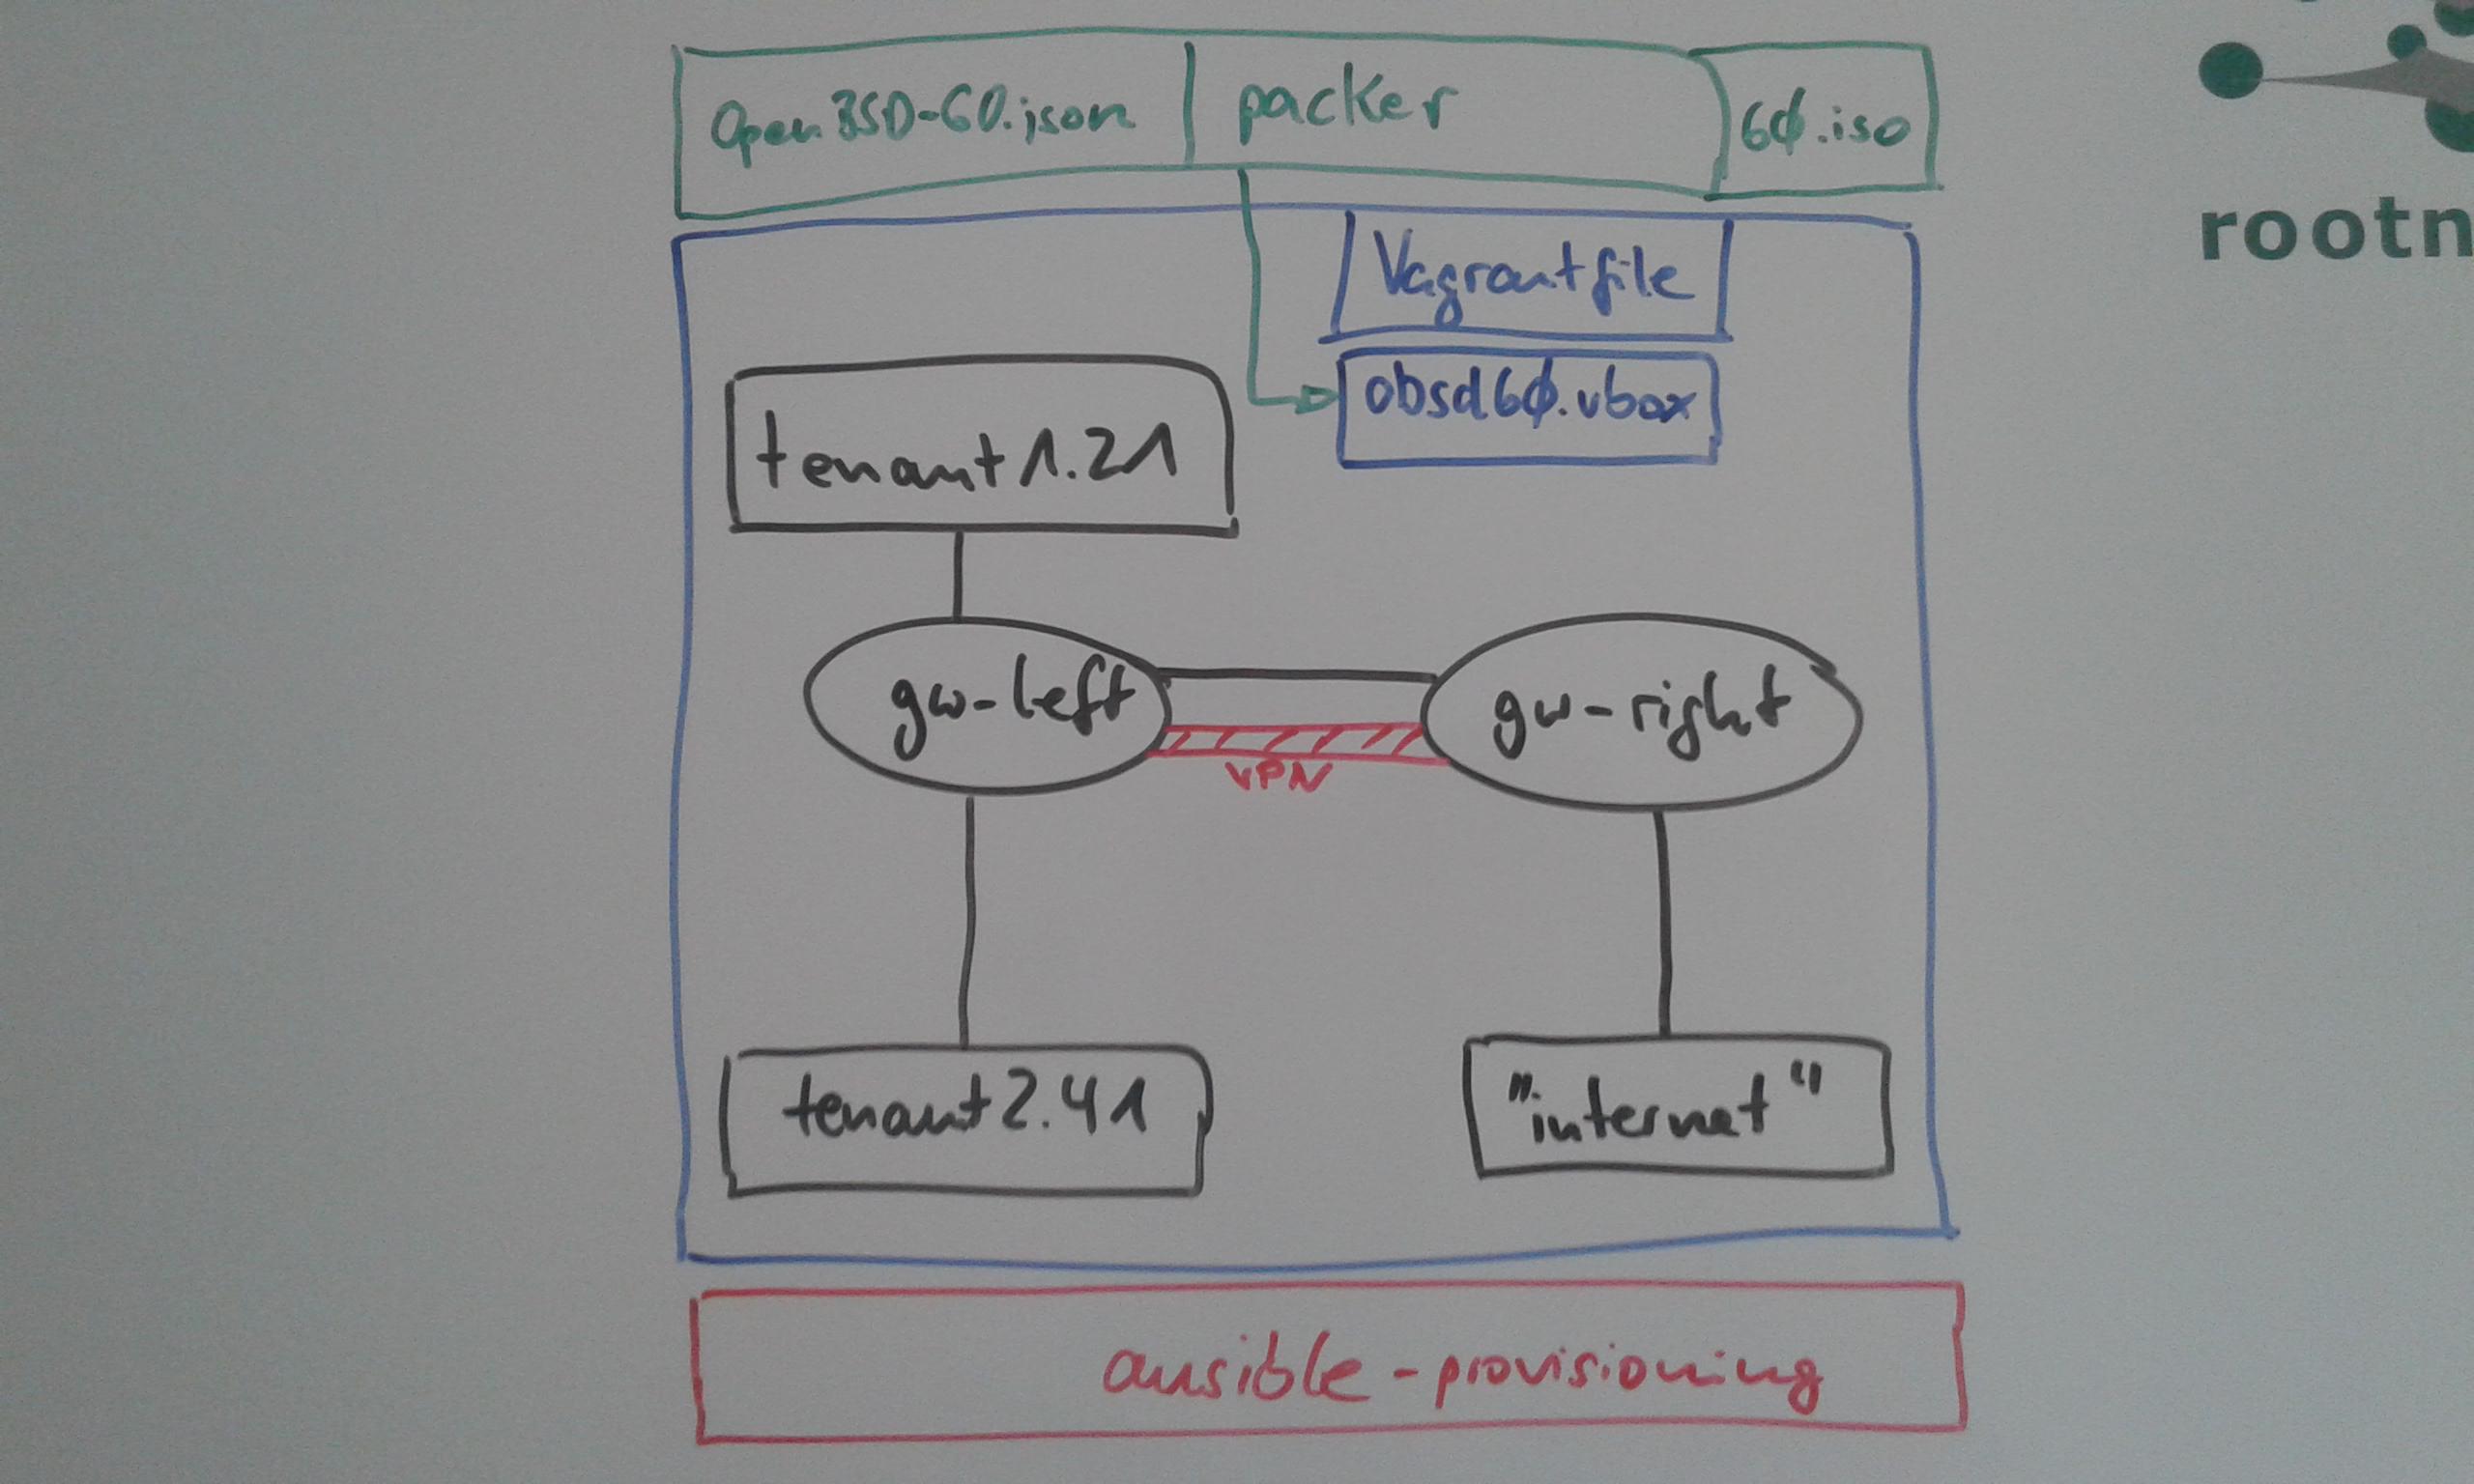 OpenBSD-60.json packer 60.iso
rootn
Vagrantfile
obsd60.vbox
tenant1.21
gw-left gw-right
VPN
tenant2.41 "internet"
ansible-provisioning